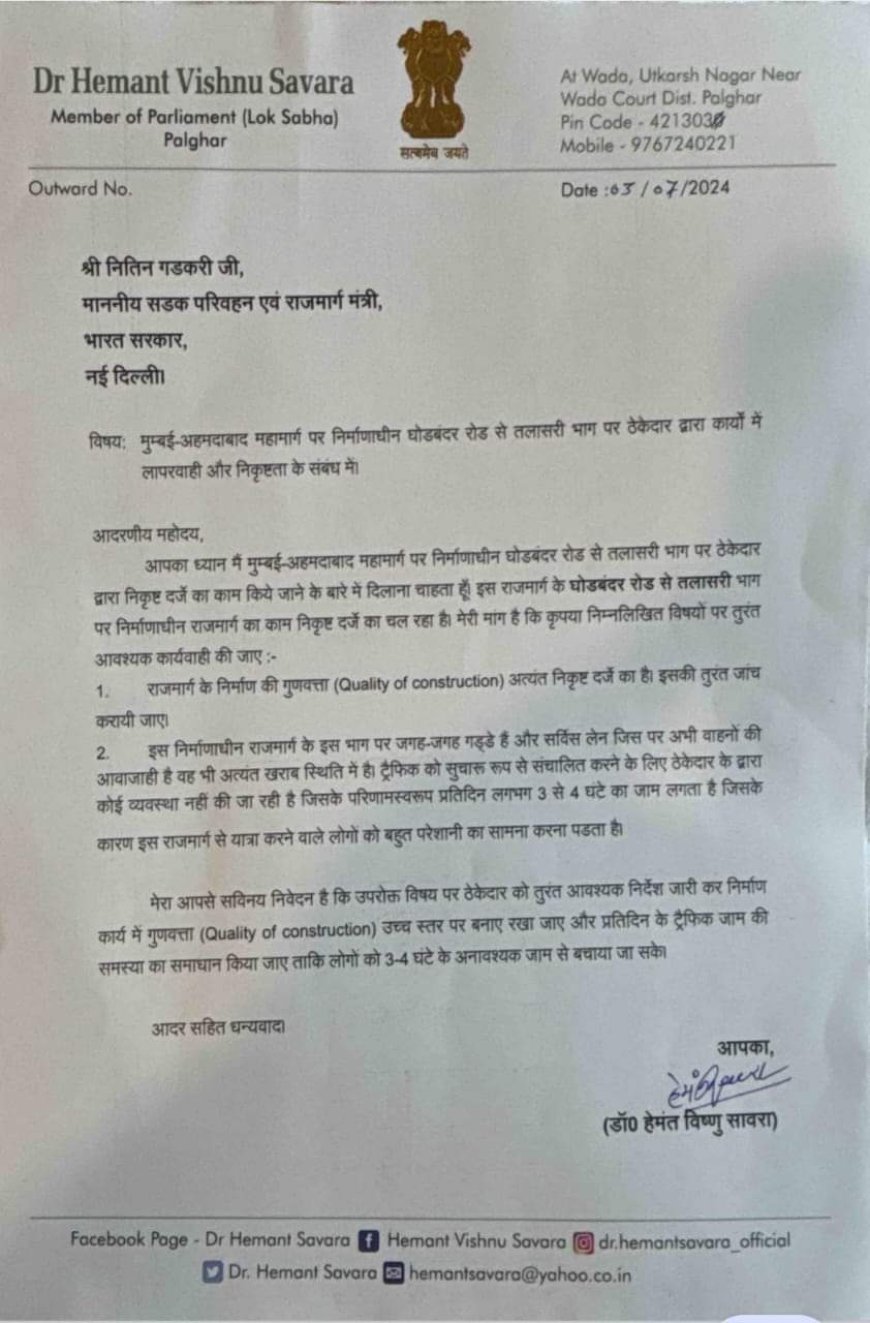 Dr Hemant Vishnu Savara
Member of Parliament (Lok Sabha)
Palghar
सत्यमेव जयते
At Wada, Utkarsh Nagar Near
Wada Court Dist. Palghar
Pin Code - 421303
Mobile - 9767240221
Outward No.
Date :03/07/2024
श्री नितिन गडकरी जी,
माननीय सडक परिवहन एवं राजमार्ग मंत्री,
भारत सरकार,
नई दिल्ली।
विषय: मुम्बई-अहमदाबाद महामार्ग पर निर्माणाधीन घोडबंदर रोड से तलासरी भाग पर ठेकेदार द्वारा कार्यों में
लापरवाही और निकृष्टता के संबंध में।
आदरणीय महोदय,
आपका ध्यान मैं मुम्बई-अहमदाबाद महामार्ग पर निर्माणाधीन घोडबंदर रोड से तलासरी भाग पर ठेकेदार
द्वारा निकृष्ट दर्जे का काम किये जाने के बारे में दिलाना चाहता हूँ। इस राजमार्ग के घोडबंदर रोड से तलासरी भाग
पर निर्माणाधीन राजमार्ग का काम निकृष्ट दर्जे का चल रहा है। मेरी मांग है कि कृपया निम्नलिखित विषयों पर तुरंत
आवश्यक कार्यवाही की जाए :-
1. राजमार्ग के निर्माण की गुणवत्ता (Quality of construction) अत्यंत निकृष्ट दर्जे का है। इसकी तुरंत जांच
करायी जाए।
2. इस निर्माणाधीन राजमार्ग के इस भाग पर जगह-जगह गड्डे हैं और सर्विस लेन जिस पर अभी वाहनों की
आवाजाही है वह भी अत्यंत खराब स्थिति में है। ट्रैफिक को सुचारू रूप से संचालित करने के लिए ठेकेदार के द्वारा
कोई व्यवस्था नहीं की जा रही है जिसके परिणामस्वरूप प्रतिदिन लगभग 3 से 4 घंटे का जाम लगता है जिसके
कारण इस राजमार्ग से यात्रा करने वाले लोगों को बहुत परेशानी का सामना करना पडता है।
मेरा आपसे सविनय निवेदन है कि उपरोक्त विषय पर ठेकेदार को तुरंत आवश्यक निर्देश जारी कर निर्माण
कार्य में गुणवत्ता (Quality of construction) उच्च स्तर पर बनाए रखा जाए और प्रतिदिन के ट्रैफिक जाम की
समस्या का समाधान किया जाए ताकि लोगों को 3-4 घंटे के अनावश्यक जाम से बचाया जा सके।
आदर सहित धन्यवाद।
आपका,
(डॉ0 हेमंत विष्णु सावरा)
Facebook Page - Dr Hemant Savara Hemant Vishnu Savara dr.hemantsavara_official
Dr. Hemant Savara hemantsavara@yahoo.co.in